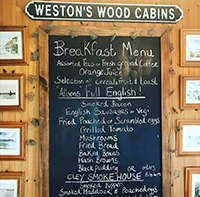 WESTON'S WOOD CABINS
Breakfast Menu
Assorted Teas or Fresh ground Coffee
Orange Juice
Selection of cereals, fruit & toast
Full English!
Smoked Bacon
English Sausages or Veg
Fried, Poached or Scrambled eggs
Grilled Tomato
Mushrooms
Fried Bread
Baked Beans
Hash Browns
Black pudding OR
CLEY SMOKE HOUSE
Smoked Kipper
Smoked Haddock & Poached egg